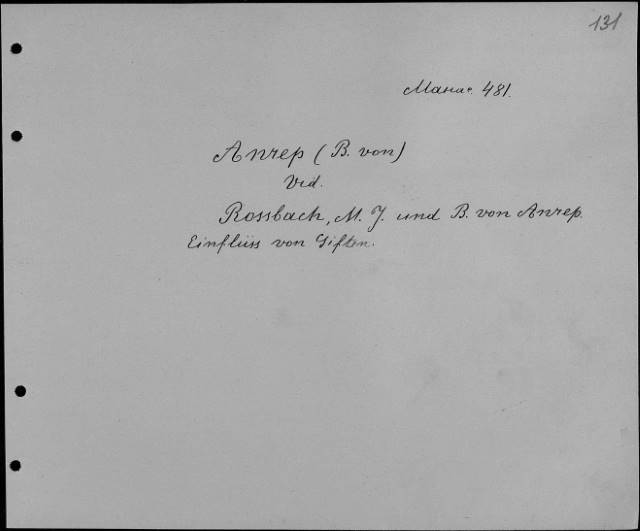 131
481.
Anrep (B. von)
Vid.
Rossbach, M. J. und B. von Anrep.
Einflüss von Giften.